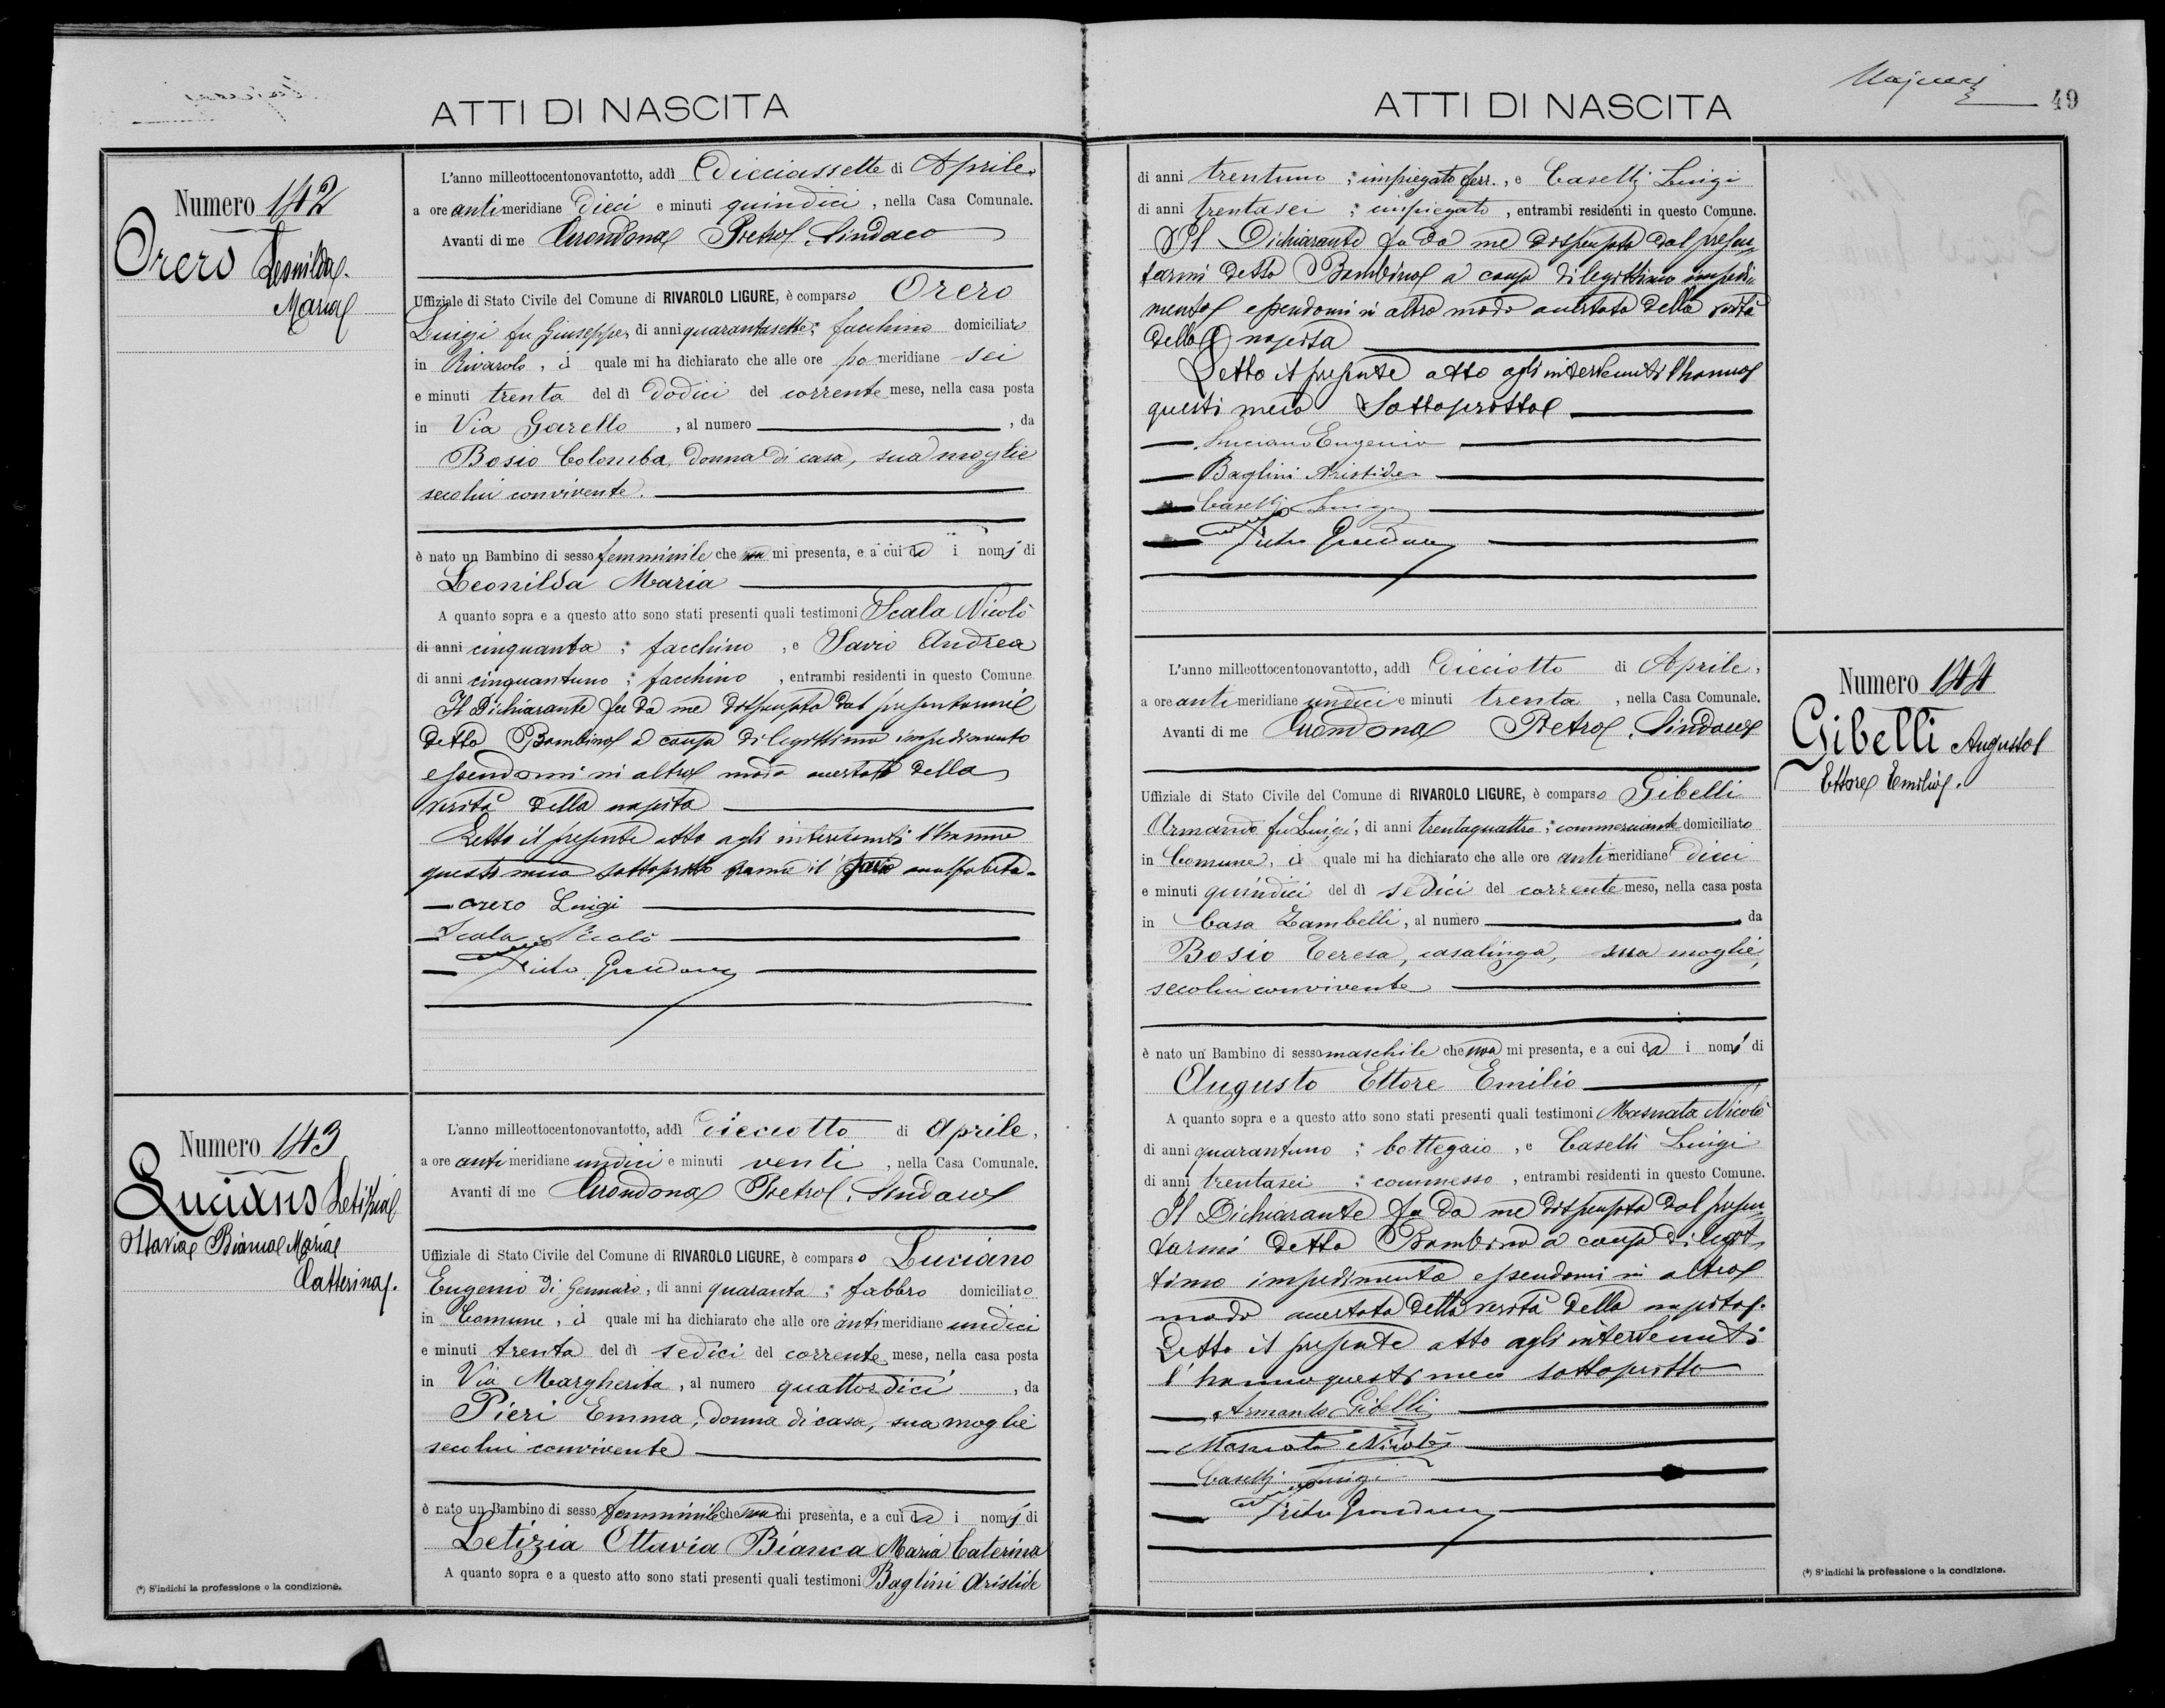 ATTI DI NASCITA
Numero 142
Orero Leonilda
Maria
L'anno milleottocentonovantotto, addì Dicciassette di Aprile,
a ore antimeridiane Dieci e minuti quindici, nella Casa Comunale.
Avanti di me Grondona Pietro, Sindaco
Uffiziale di Stato Civile del Comune di RIVAROLO LIGURE, è comparso Orero
Luigi fu Giuseppe, di anni quarantasette; facchino domiciliato
in Rivarolo, il quale mi ha dichiarato che alle ore pomeridiane sei
e minuti trenta del dì dodici del corrente mese, nella casa posta
in Via Garello, al numero , da
Bosio Colomba, donna di casa, sua moglie
secolui convivente.
è nato un Bambino di sesso femminile che non mi presenta, e a cui dà i nomi di
Leonilda Maria
A quanto sopra e a questo atto sono stati presenti quali testimoni Scala Nicolò
di anni cinquanta; facchino, e Savio Andrea
di anni cinquantuno; facchino, entrambi residenti in questo Comune
Il Dichiarante fu da me dispensato dal presentarmi
detto Bambino a causa di legittimo impedimento
essendomi in altro modo accertato della
verità della nascita
Letto il presente atto agli intervenuti l'hanno
questi meco sottoscritto il Savio
Orero Luigi
Scala Nicolò
Pietro Grondona
Numero 143
Luciano Letizia
Ottavia Bianca Maria
Catterina.
L'anno milleottocentonovantotto, addì Dicciotto di Aprile,
a ore antimeridiane undici e minuti venti, nella Casa Comunale.
Avanti di me Grondona Pietro, Sindaco
Uffiziale di Stato Civile del Comune di RIVAROLO LIGURE, è comparso Luciano
Eugenio di Gennaro, di anni quaranta; fabbro domiciliato
in Comune, il quale mi ha dichiarato che alle ore antimeridiane undici
e minuti trenta del dì sedici del corrente mese, nella casa posta
in Via Margherita, al numero quattordici, da
Pieri Emma, donna di casa, sua moglie
secolui convivente
è nato un Bambino di sesso femminile che non mi presenta, e a cui dà i nomi di
Letizia Ottavia Bianca Maria Caterina
A quanto sopra e a questo atto sono stati presenti quali testimoni Baglini Aristide
(*) S'indichi la professione o la condizione.
ATTI DI NASCITA
49
di anni trentuno; impiegato ferr., e Caselli Luigi
di anni trentasei; impiegato, entrambi residenti in questo Comune.
Il Dichiarante fu da me dispensato dal presen
tarmi detto Bambino a causa di legittimo impedi
mento essendomi in altro modo accertato della verità
della nascita
Letto il presente atto agli intervenuti l'hanno
questi meco Sottoscritto
Luciano Eugenio
Baglini Aristide
Caselli Luigi
Pietro Grondona
Numero 144
Gibelli Augusto
Ettore Emilio.
L'anno milleottocentonovantotto, addì Dicciotto di Aprile,
a ore antimeridiane undici e minuti trenta, nella Casa Comunale.
Avanti di me Grondona Pietro, Sindaco
Uffiziale di Stato Civile del Comune di RIVAROLO LIGURE, è comparso Gibelli
Armando fu Luigi, di anni trentaquattro; commerciante domiciliato
in Comune, il quale mi ha dichiarato che alle ore antimeridiane dieci
e minuti quindici del dì sedici del corrente mese, nella casa posta
in Casa Zambelli, al numero , da
Bosio Teresa, casalinga, sua moglie,
secolui convivente
è nato un Bambino di sesso maschile che non mi presenta, e a cui dà i nomi di
Augusto Ettore Emilio
A quanto sopra e a questo atto sono stati presenti quali testimoni Masnata Nicolò
di anni quarantuno; bottegaio, e Caselli Luigi
di anni trentasei; commesso, entrambi residenti in questo Comune.
Il Dichiarante fu da me dispensato dal presen
tarmi detto Bambino a causa di legit
timo impedimento essendomi in altro
modo accertato della verità della nascita.
Letto il presente atto agli intervenuti
l'hanno questi meco sottoscritto
Armando Gibelli
Masnata Nicolò
Caselli Luigi
Pietro Grondona
(*) S'indichi la professione o la condizione.